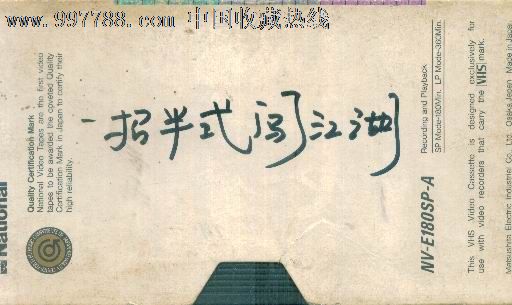 www.997788.com 中国收藏热线
一招半式闯江湖
National
Quality Certification Mark
National Video Tapes are the first video
tapes to be awarded the coveted Quality
Certification Mark in Japan to certify their
high reliability.
NV-E180SP-A
Recording and Playback
SP Mode-180Min. LP Mode-360Min.
This VHS Video Cassette is designed exclusively for
use with video recorders that carry the VHS mark.
Matsushita Electric Industrial Co., Ltd. Osaka Japan Made in Japan